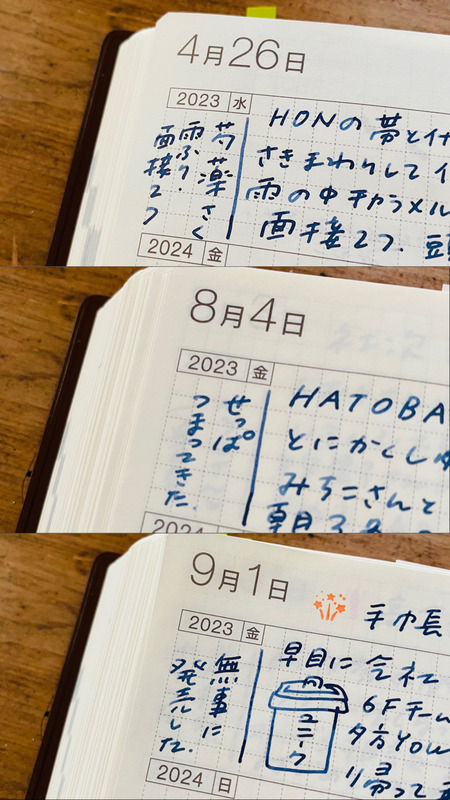 4月26日
2023 水
芍薬さく
雨ふり.
面接2つ
HONの帯とイ
さきまわりして
雨の中チャラメル
面接2つ.
2024 金
8月4日
2023 金
せっぱ
つまってきた.
HATOBA
とにかくし
みちこさんと
2024
9月1日
手巾長
2023 金
無事に
発売した.
早目に 会社
ユニーク
6Fチーム
夕方YOU
帰って
2024 日